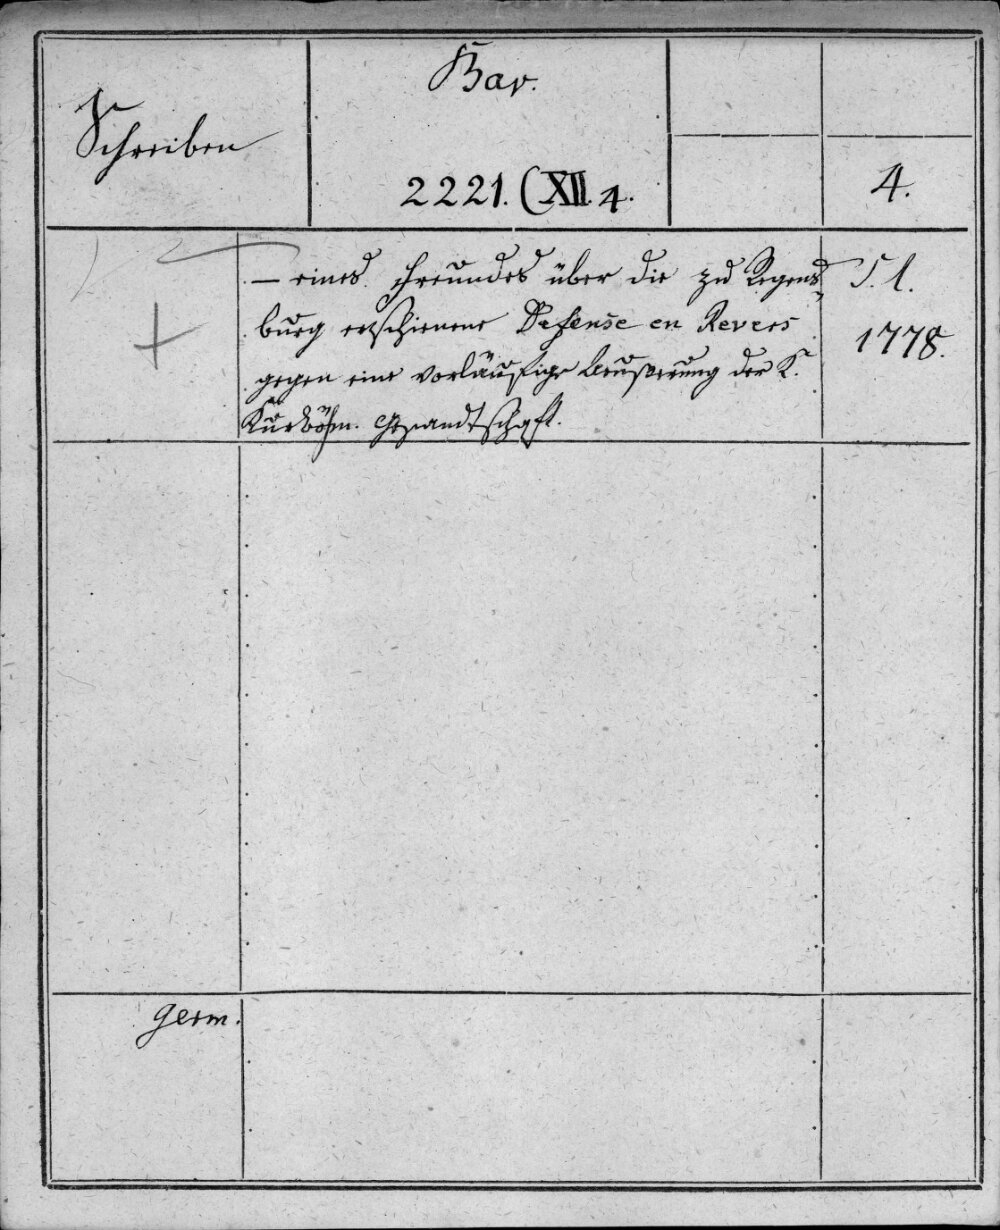 Schreiben
Bav.
2221. (XII. 4.
4.
— eines Freundes über die zu Regens-
burg erschienene Defense en Revers
gegen eine vorläufige Aeußerung der K.
Kurböhm. Gesandtschaft.
S. l.
1778.
germ.